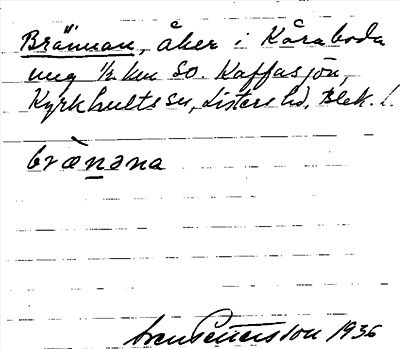 Brännan, åker i Kåraboda
ung ½ km SO. Kaffasjön,
Kyrkhults sn, Listers hd, Blek. l.
brænəna
Sven Pettersson 1936